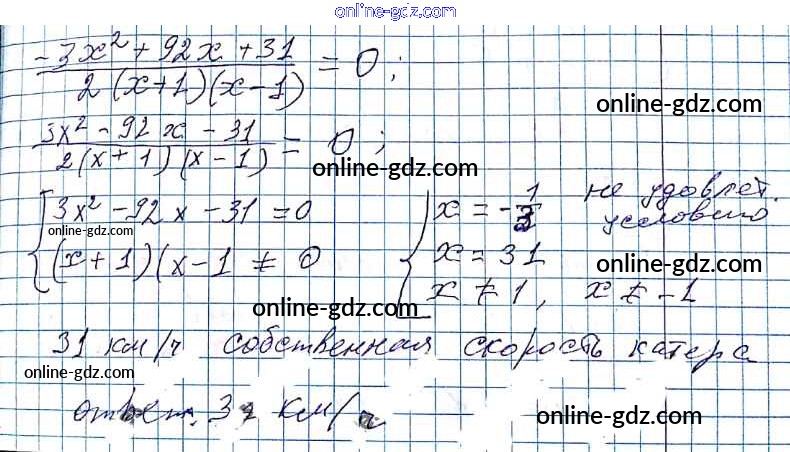 online-gdz.com
-3x² + 92x + 31 / 2(x+1)(x-1) = 0;
online-gdz.com
3x² - 92x - 31 / 2(x+1)(x-1) = 0;
online-gdz.com
online-gdz.com
{ 3x² - 92x - 31 = 0
(x+1)(x-1 ≠ 0
online-gdz.com
{ x = -1/3 не удовлет. условию
x = 31
x ≠ 1, x ≠ -1
online-gdz.com
online-gdz.com
31 км/ч собственная скорость катера
online-gdz.com
ответ: 31 км/ч
online-gdz.com